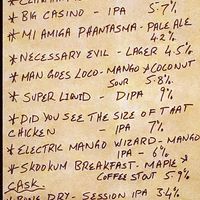 * BIG CASINO - IPA 5.7%
* MI AMIGA PHANTASMA - PALE ALE
4.2%
* NECESSARY EVIL - LAGER 4.5%
* MAN GOES LOCO - MANGO & COCONUT
SOUR 5.8%
* SUPER LIQUID - DIPA 9%
* DID YOU SEE THE SIZE OF THAT
CHICKEN - IPA 7%
* ELECTRIC MANGO WIZARD - MANGO
IPA - 6%
* SKOOKUM BREAKFAST - MAPLE &
COFFEE STOUT 5.9%
CASK
* BONE DRY - SESSION IPA 3.4%